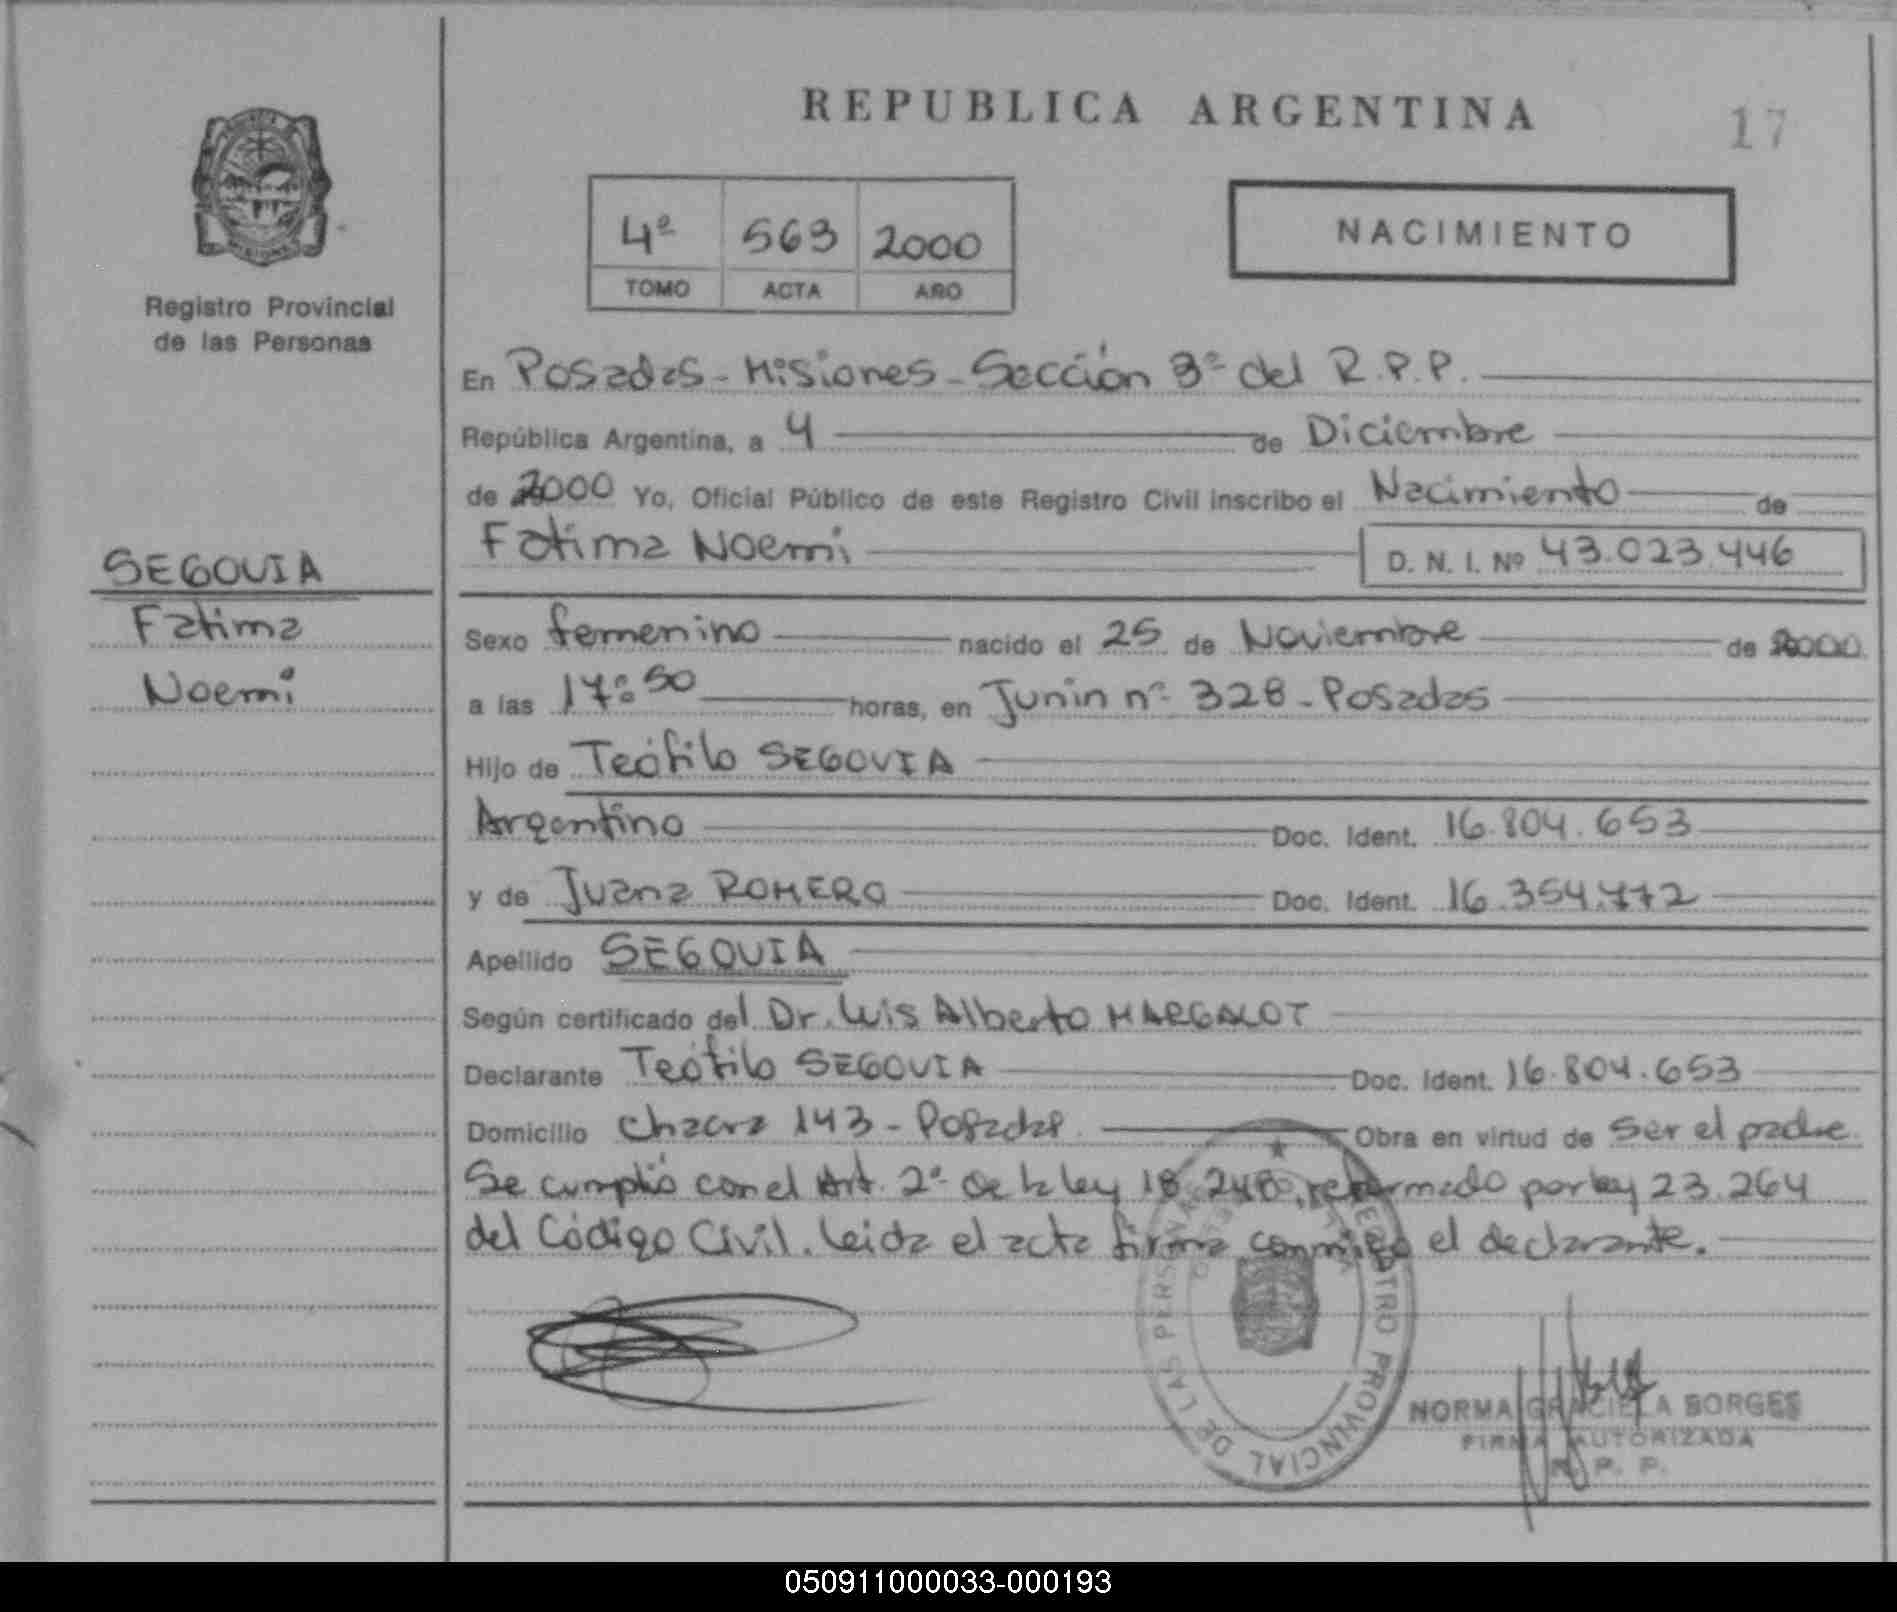 REPUBLICA ARGENTINA
17
4º 563 2000
TOMO ACTA AÑO
NACIMIENTO
Registro Provincial
de las Personas
En Posadas - Misiones - Sección 3ª del R.P.P.
República Argentina, a 4 de Diciembre
de 2000 Yo, Oficial Público de este Registro Civil inscribo el Nacimiento de
Fatima Noemi D. N. I. Nº 43.023.446
SEGOVIA
Fatima
Noemi
Sexo femenino nacido el 25 de Noviembre de 2000
a las 17:50 horas, en Junin nº 328 - Posadas
Hijo de Teófilo SEGOVIA
Argentino Doc. Ident. 16.804.653
y de Juana ROMERO Doc. Ident. 16.354.772
Apellido SEGOVIA
Según certificado del Dr. Luis Alberto MARGALOT
Declarante Teófilo SEGOVIA Doc. Ident. 16.804.653
Domicilio Chacra 143 - Posadas Obra en virtud de ser el padre
Se cumplió con el Art. 2º de la ley 18.248, reformado por ley 23.264
del Código Civil. Leida el acta firma conmigo el declarante.
REGISTRO PROVINCIAL DE LAS PERSONAS
NORMA GRACIELA BORGES
FIRMA AUTORIZADA
R. P. P.
050911000033-000193